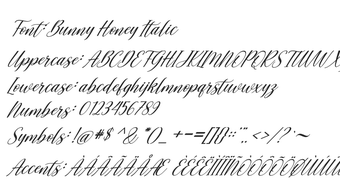 Font: Bunny Honey Italic
Uppercase: ABCDEFGHIJKLMNOPQRSTUVWX
Lowercase: abcdefghijklmnopqrstuvwxyz
Numbers: 0123456789
Symbols: !@#$ ^& *()_ +-=[]{}:;"',. <>/? ~
Accents: